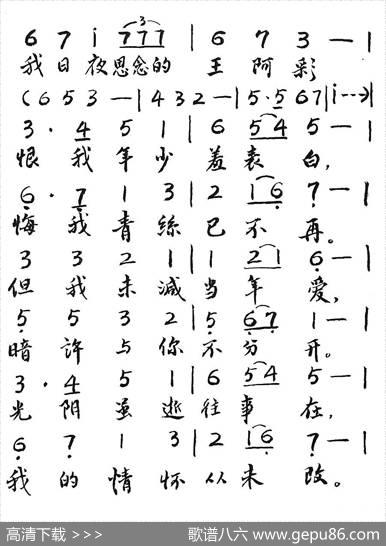 6 7 i 777 | 6 7 3 — |
我日夜思念的 王 阿 彩
(6 5 3 — | 4 3 2 — | 5·5 67 | i --→ |
3· 4 5 1 | 6 54 5 — |
恨 我 年 少 羞 表 白,
6· 7 1 3 | 2 16 7 — |
悔 我 青 丝 已 不 再。
3 3 2 1 | 1 21 6 — |
但 我 未 减 当 年 爱,
5 5 3 2 | 5 67 1 — |
暗 许 与 你 不 分 开。
3· 4 5 1 | 6 54 5 — |
光 阴 虽 逝 往 事 在,
6 7 1 3 | 2 16 7 — |
我 的 情 怀 从 未 改。
高清下载 >>> 歌谱八六 www.gepu86.com